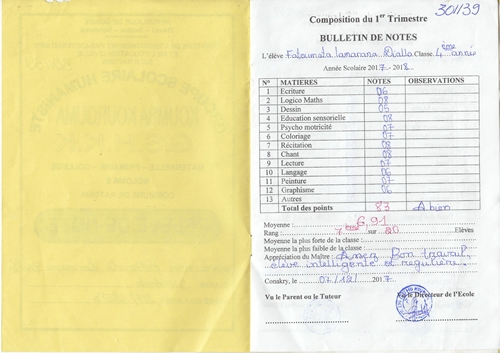 301/39
Composition du 1er Trimestre
BULLETIN DE NOTES
L'élève Fatoumata lamarana Diallo Classe 4ème année
Année Scolaire 2017 - 2018
N° MATIERES NOTES OBSERVATIONS
1 Ecriture 06
2 Logico Maths 08
3 Dessin 05
4 Education sensorielle 08
5 Psycho motricité 07
6 Coloriage 07
7 Récitation 08
8 Chant 08
9 Lecture 07
10 Langage 06
11 Peinture 07
12 Graphisme 06
13 Autres
Total des points 83 A.bien
Moyenne : 6,91
Rang : 7ème sur 20 Elèves
Moyenne la plus forte de la classe :
Moyenne la plus faible de la classe :
Appréciation du Maître : Assez Bon travail,
élève intelligente et régulière.
Conakry, le 07/12/ 2017
Vu le Parent ou le Tuteur Vu le Directeur de l'Ecole